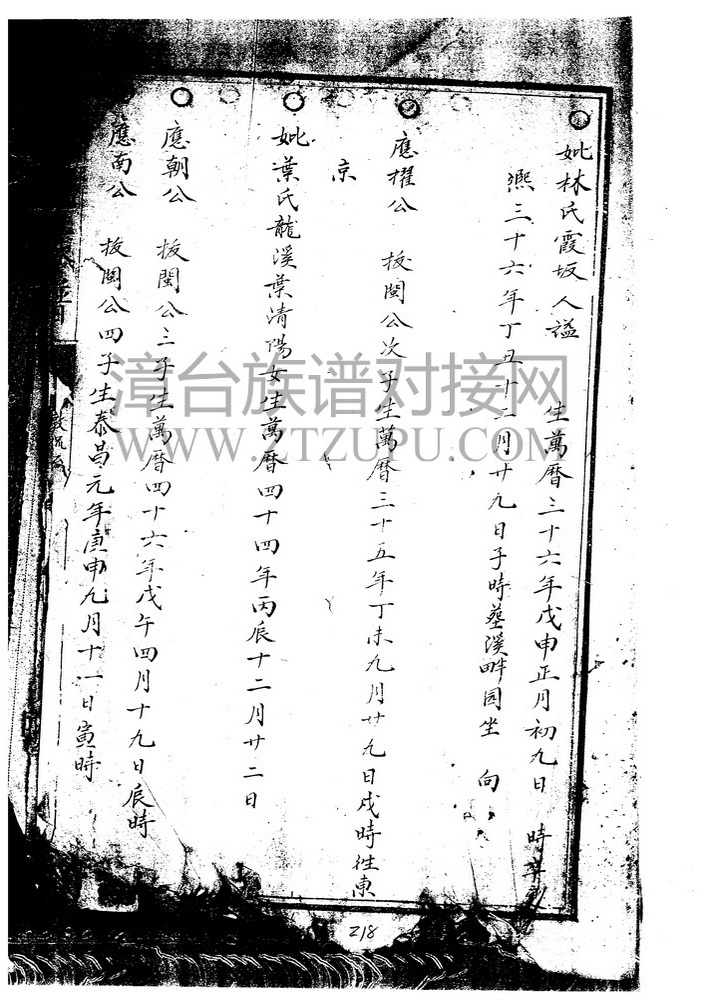 妣林氏霞坂人謚　生萬曆三十六年戊申正月初九日　時卒
熙三十六年丁丑十二月廿九日子時葬溪畔园坐　向
應擢公　扳閩公次子生萬曆三十五年丁未九月廿九日戌時往東
京
妣葉氏龍溪葉清陽女生萬曆四十四年丙辰十二月廿二日
應朝公　扳閩公三子生萬曆四十六年戊午四月十九日辰時
應南公　扳閩公四子生泰昌元年庚申九月十一日寅時
漳台族谱对接网
WWW.ZTZUPU.COM
218